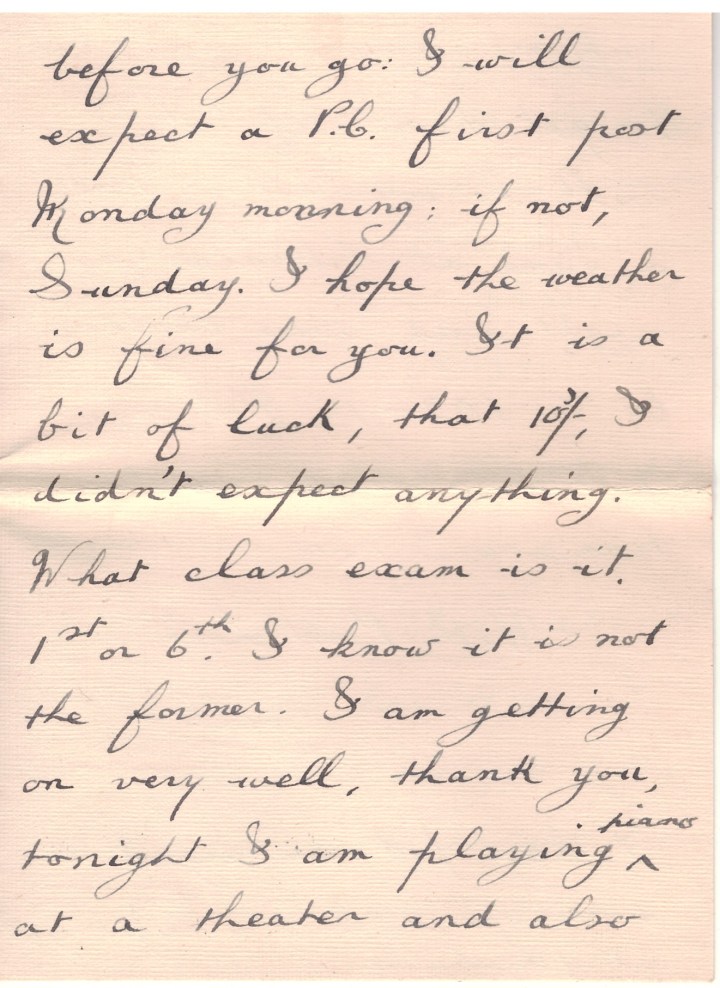 before you go: I will
expect a P.C. first post
Monday morning; if not,
Sunday. I hope the weather
is fine for you. It is a
bit of luck, that 10/-, I
didn't expect anything.
What class exam is it.
1st or 6th. I know it is not
the former. I am getting
on very well, thank you,
tonight I am playing ^ piano
at a theater and also